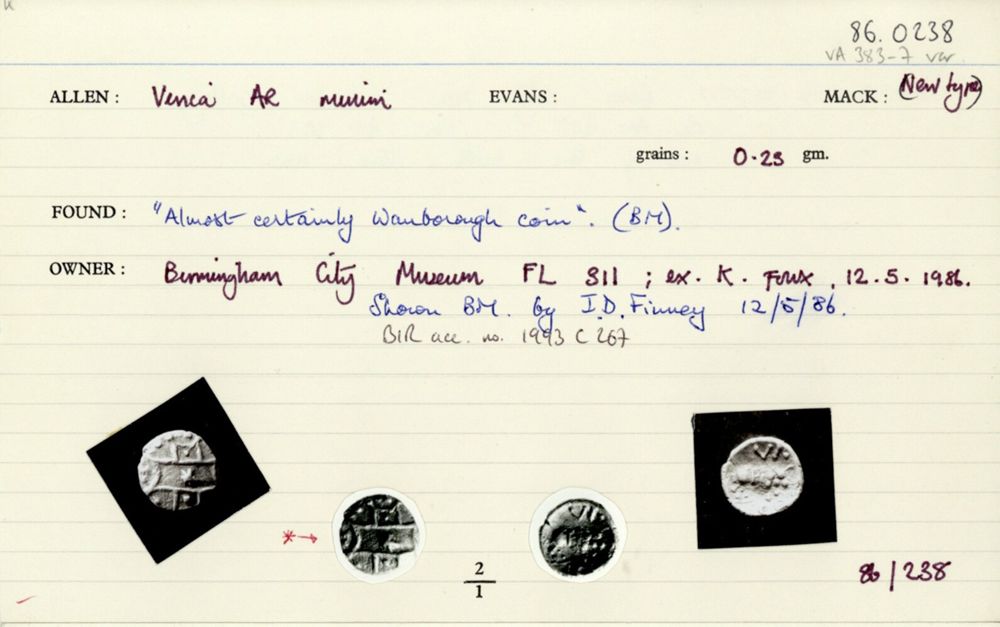 86.0238
VA 383-7 var.
ALLEN : Verica AR minim EVANS : MACK : (New type)
grains : 0.23 gm.
FOUND : "Almost certainly Wanborough coin". (BM).
OWNER : Birmingham City Museum FL 311 ; ex. K. , 12.5.1986.
Shown BM. by I.D. Finney 12/5/86.
BIR acc. no. 1993 C 267
*→
2
1
86/238